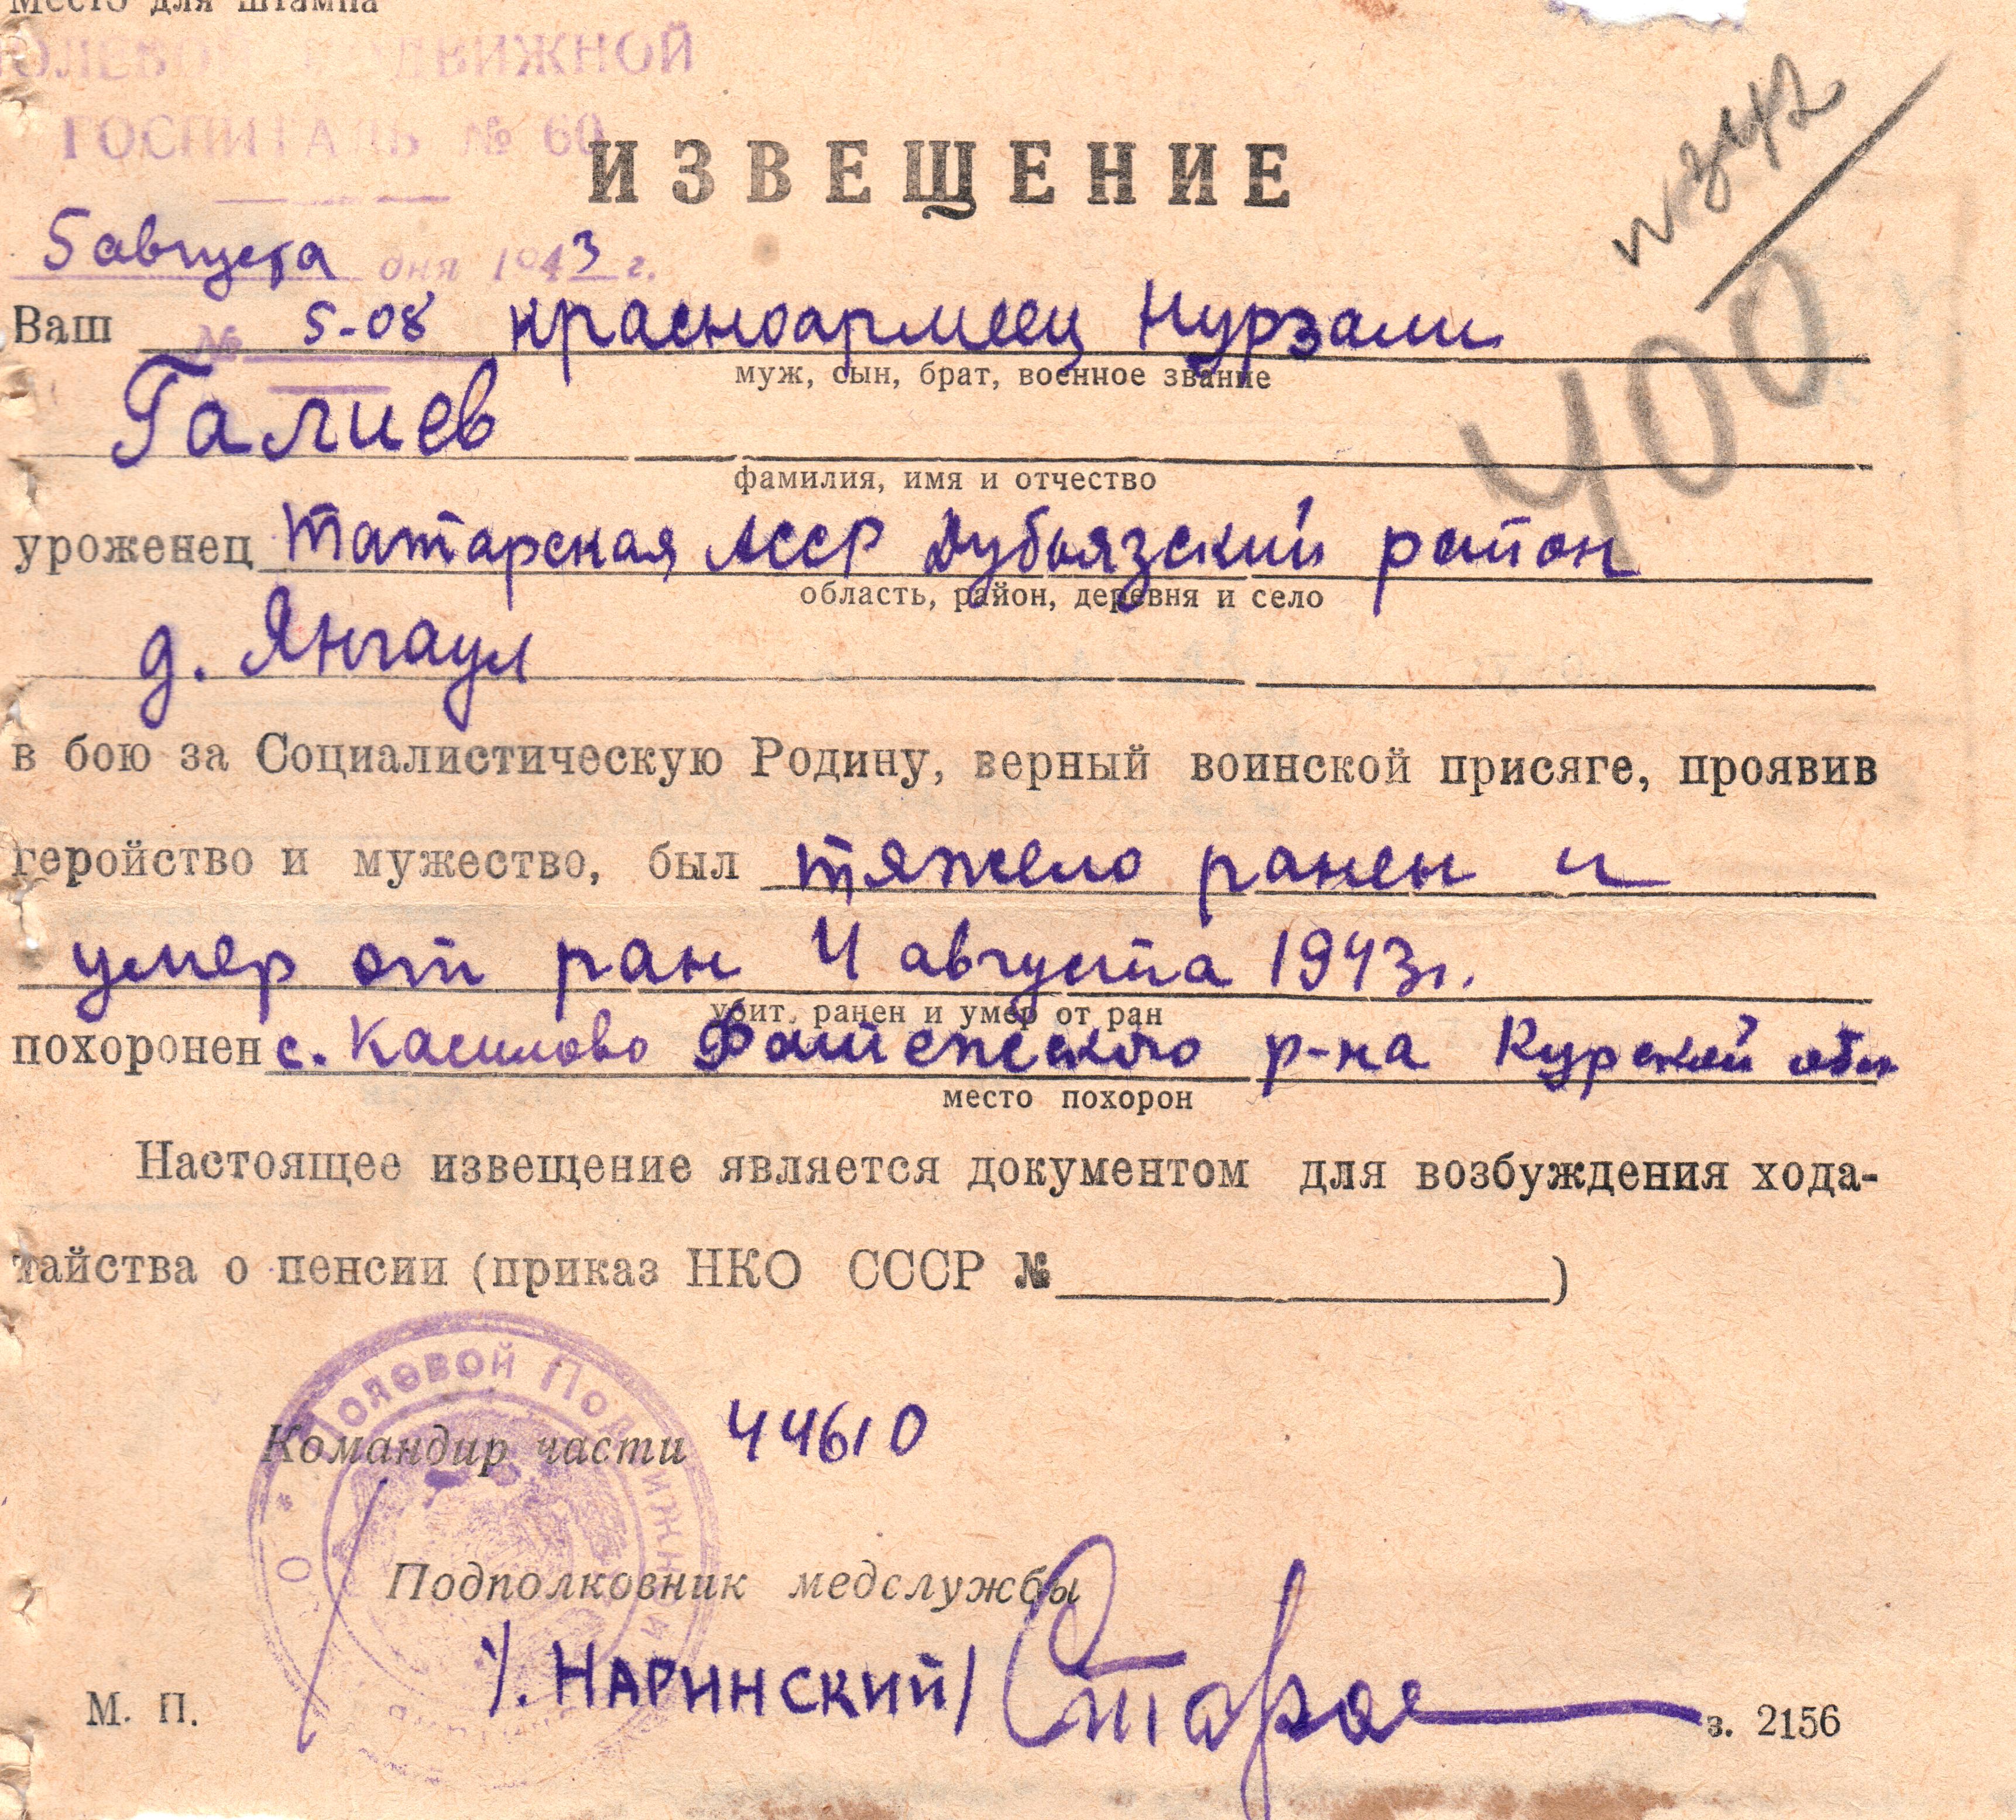 Место для штампа
ПОЛЕВОЙ ПОДВИЖНОЙ
ГОСПИТАЛЬ № 60
ИЗВЕЩЕНИЕ
5 августа дня 1943 г.
Ваш № 5-08 красноармеец Нурзали
муж, сын, брат, военное звание
Галиев
фамилия, имя и отчество
уроженец Татарская АССР Дубьязский район
область, район, деревня и село
д. Янгаул
в бою за Социалистическую Родину, верный воинской присяге, проявив
геройство и мужество, был тяжело ранен и
умер от ран 4 августа 1943 г.
убит, ранен и умер от ран
похоронен с. Касилово Фатежского р-на Курской обл
место похорон
Настоящее извещение является документом для возбуждения хода-
тайства о пенсии (приказ НКО СССР № )
Полевой Подвижной
Командир части 44610
Подполковник медслужбы
/. НАРИНСКИЙ/
М. П.
з. 2156
400